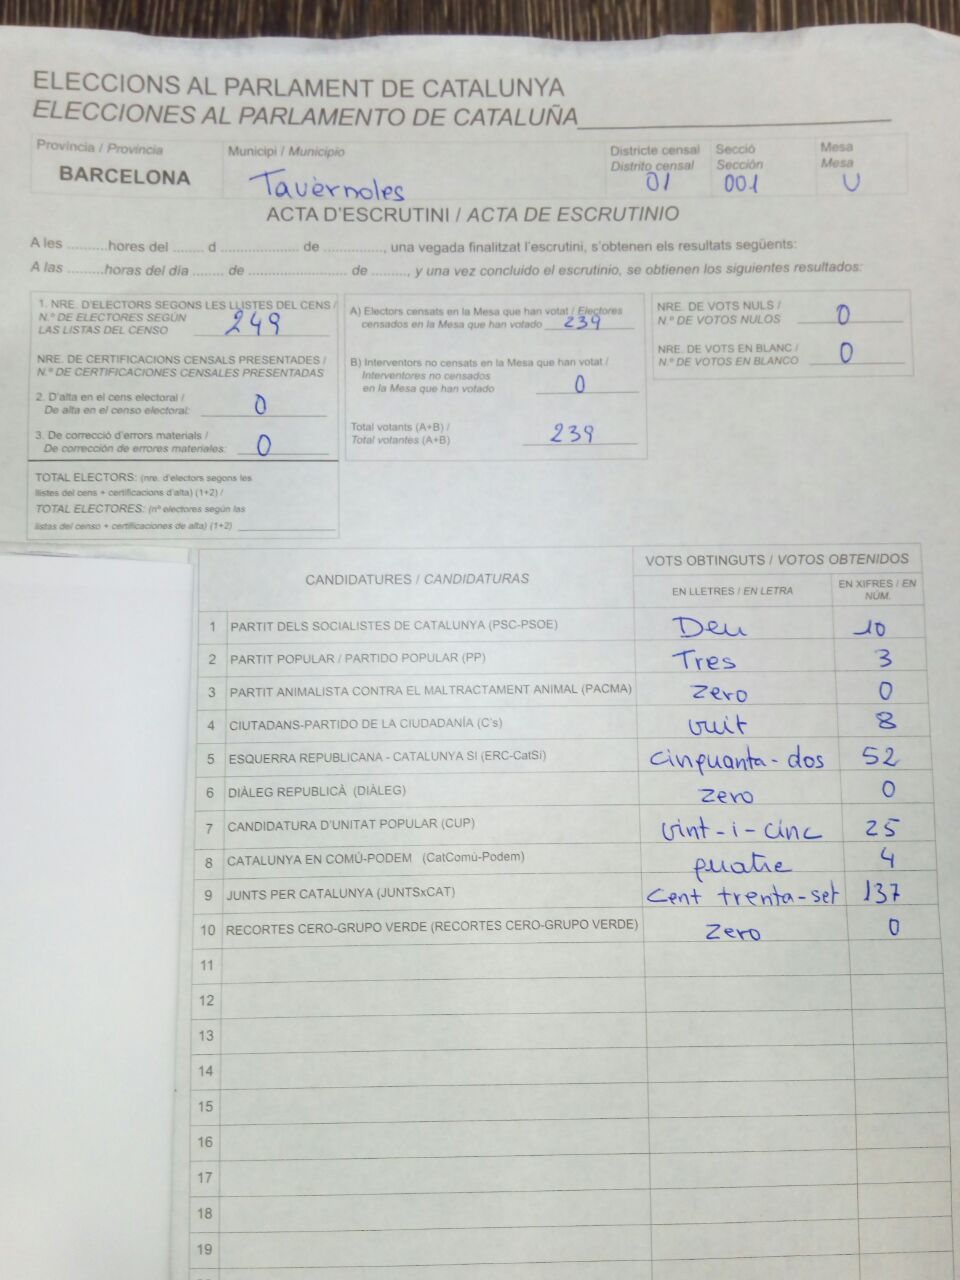 ELECCIONS AL PARLAMENT DE CATALUNYA
ELECCIONES AL PARLAMENTO DE CATALUÑA
Província / Provincia
BARCELONA
Municipi / Municipio
Tavèrnoles
Districte censal
Distrito censal
01
Secció
Sección
001
Mesa
Mesa
U
ACTA D'ESCRUTINI / ACTA DE ESCRUTINIO
A les ..........hores del ........ d .................... de ..............., una vegada finalitzat l'escrutini, s'obtenen els resultats següents:
A las ..........horas del día ........ de ......................... de ........., y una vez concluido el escrutinio, se obtienen los siguientes resultados:
1. NRE. D'ELECTORS SEGONS LES LLISTES DEL CENS /
N.º DE ELECTORES SEGÚN
LAS LISTAS DEL CENSO 249
NRE. DE CERTIFICACIONS CENSALS PRESENTADES /
N.º DE CERTIFICACIONES CENSALES PRESENTADAS
2. D'alta en el cens electoral /
De alta en el censo electoral: 0
3. De correcció d'errors materials /
De corrección de errores materiales: 0
TOTAL ELECTORS: (nre. d'electors segons les
llistes del cens + certificacions d'alta) (1+2) /
TOTAL ELECTORES: (nº electores según las
listas del censo + certificaciones de alta) (1+2)
A) Electors censats en la Mesa que han votat / Electores
censados en la Mesa que han votado 239
B) Interventors no censats en la Mesa que han votat /
Interventores no censados
en la Mesa que han votado 0
Total votants (A+B) /
Total votantes (A+B) 239
NRE. DE VOTS NULS /
N.º DE VOTOS NULOS 0
NRE. DE VOTS EN BLANC /
N.º DE VOTOS EN BLANCO 0
CANDIDATURES / CANDIDATURAS
VOTS OBTINGUTS / VOTOS OBTENIDOS
EN LLETRES / EN LETRA
EN XIFRES / EN
NÚM.
1 PARTIT DELS SOCIALISTES DE CATALUNYA (PSC-PSOE) Deu 10
2 PARTIT POPULAR / PARTIDO POPULAR (PP) Tres 3
3 PARTIT ANIMALISTA CONTRA EL MALTRACTAMENT ANIMAL (PACMA) zero 0
4 CIUTADANS-PARTIDO DE LA CIUDADANÍA (C's) vuit 8
5 ESQUERRA REPUBLICANA - CATALUNYA SÍ (ERC-CatSí) cinquanta-dos 52
6 DIÀLEG REPUBLICÀ (DIÀLEG) zero 0
7 CANDIDATURA D'UNITAT POPULAR (CUP) vint-i-cinc 25
8 CATALUNYA EN COMÚ-PODEM (CatComú-Podem) quatre 4
9 JUNTS PER CATALUNYA (JUNTSxCAT) Cent trenta-set 137
10 RECORTES CERO-GRUPO VERDE (RECORTES CERO-GRUPO VERDE) zero 0
11
12
13
14
15
16
17
18
19